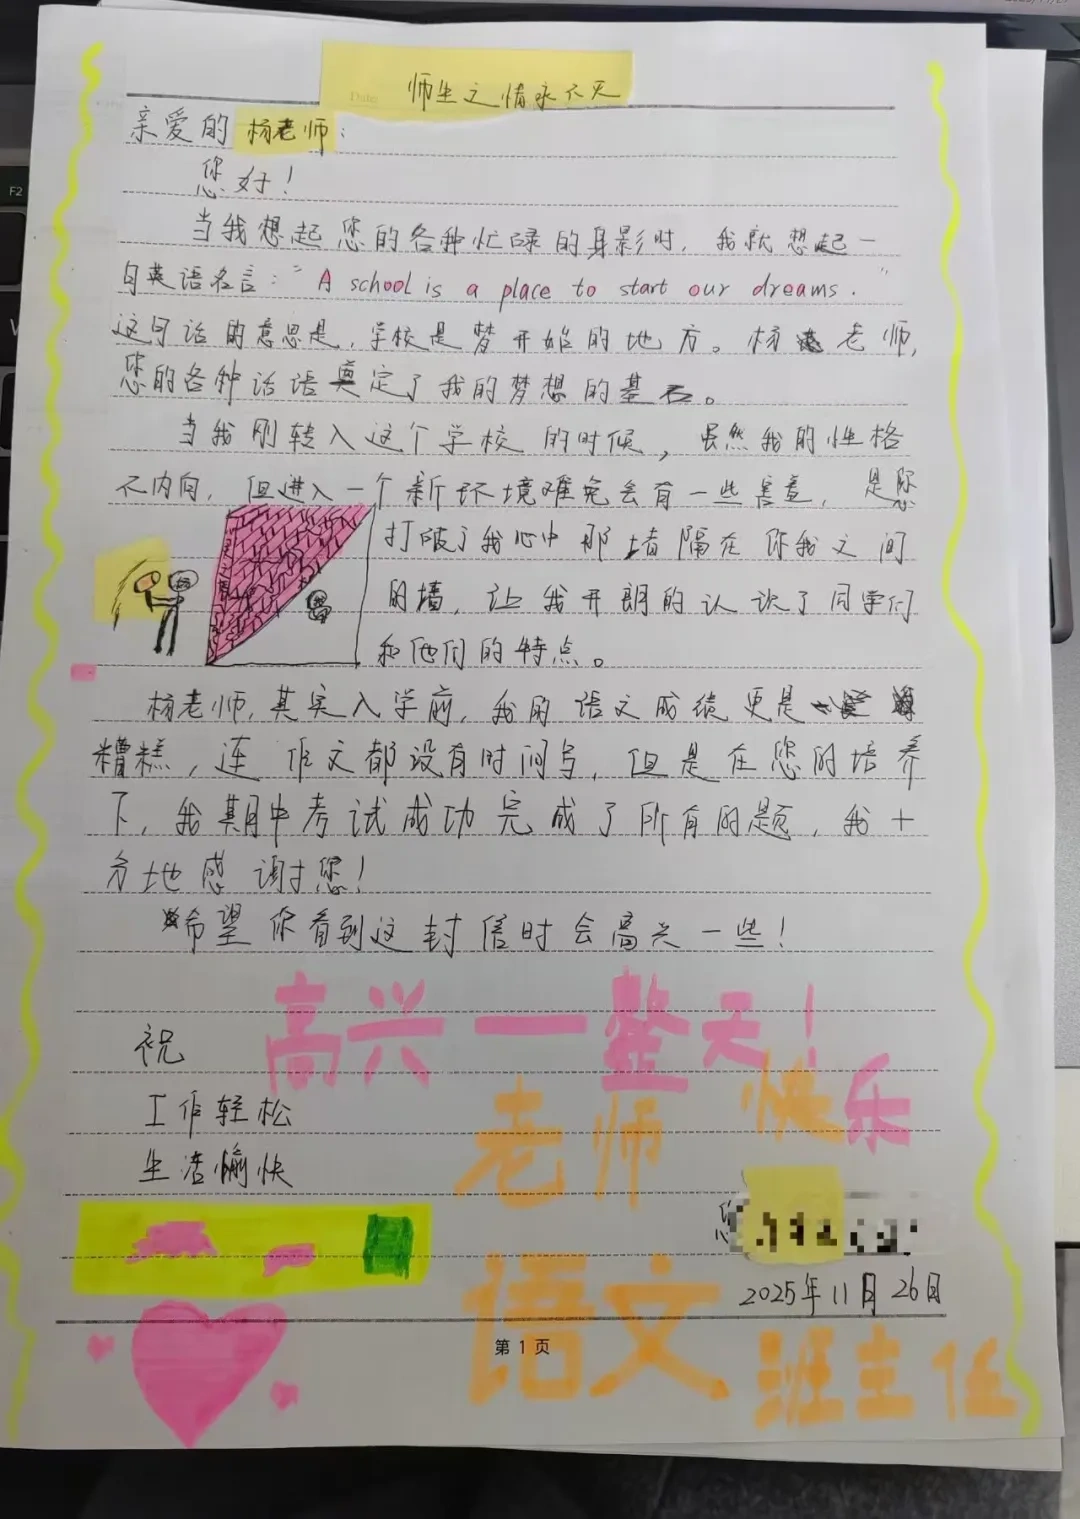 师生之情永不灭
亲爱的杨老师：
您好！
当我想起您的各种忙碌的身影时，我就想起一
句英语名言：“A school is a place to start our dreams.”
这句话的意思是，学校是梦开始的地方。杨老师，
您的各种话语奠定了我的梦想的基石。
当我刚转入这个学校的时候，虽然我的性格
不内向，但进入一个新环境难免会有一些害羞，是您
打破了我心中那堵隔在你我之间
的墙，让我开朗的认识了同学们
和他们的特点。
杨老师，其实入学前，我的语文成绩更是
糟糕，连作文都没有时间写，但是在您的培养
下，我期中考试成功完成了所有的题，我十
分地感谢您！
希望你看到这封信时会高兴一些！
高兴一整天！
祝
老师快乐
工作轻松
生活愉快
您
语文
2025年11月26日
第1页
班主任
F2